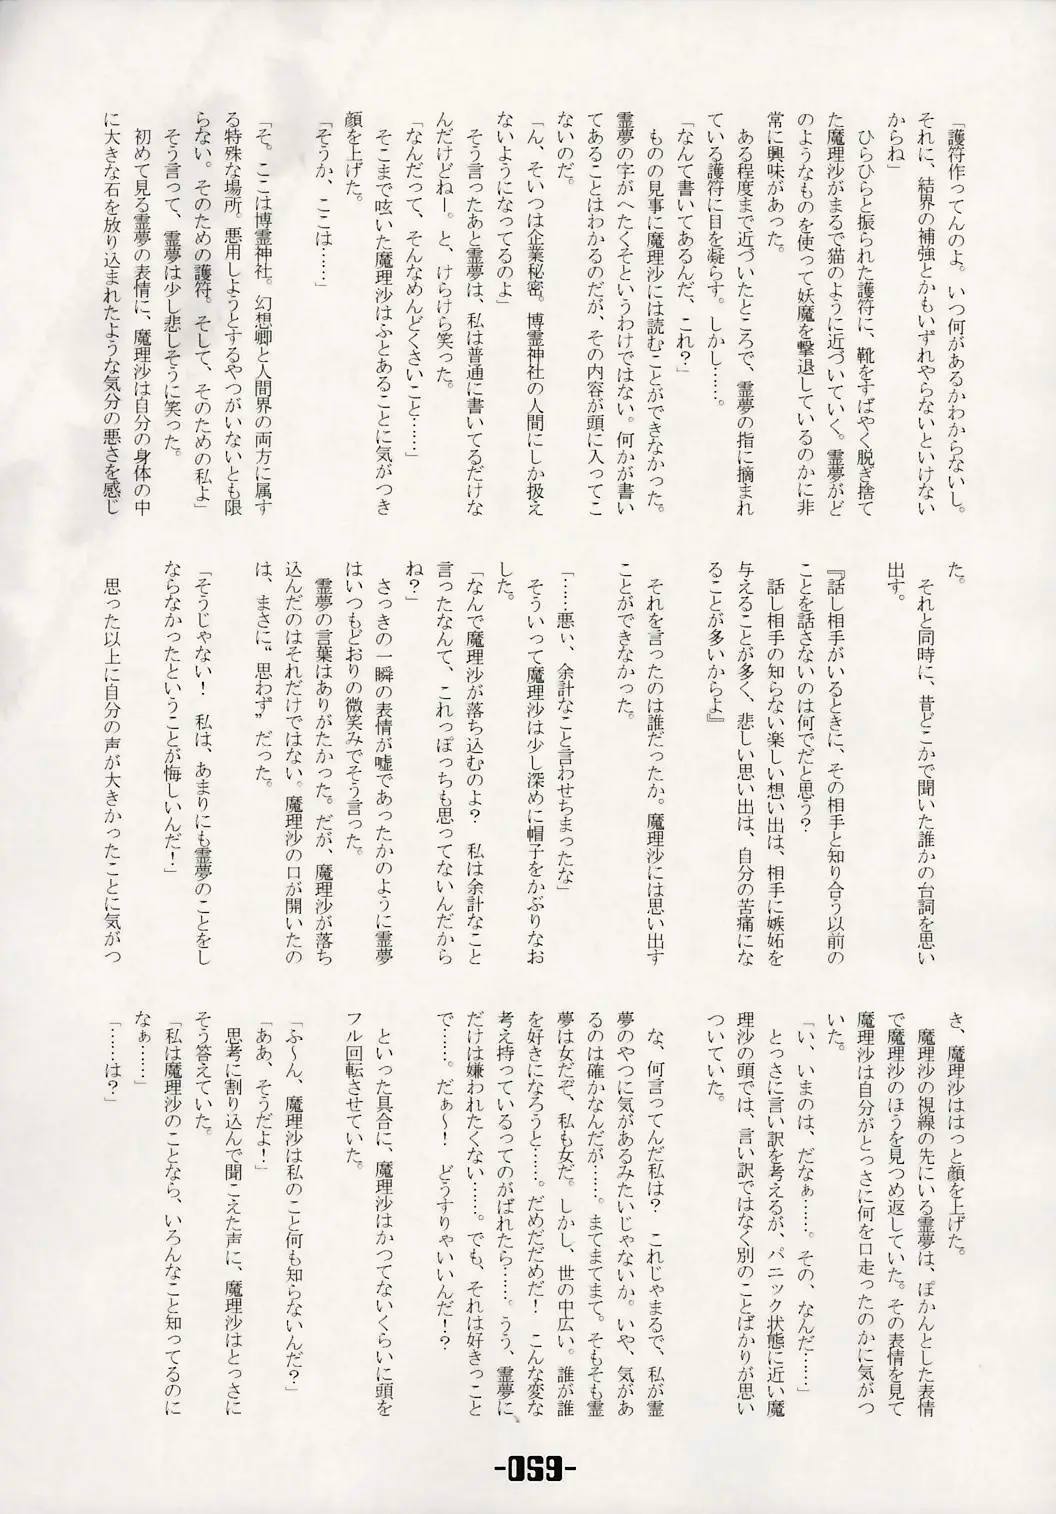 「護符作ってんのよ。いつ何があるかわからないし。
それに、結界の補強とかもいずれやらないといけない
からね」
　ひらひらと振られた護符に、靴をすばやく脱ぎ捨て
た魔理沙がまるで猫のように近づいていく。霊夢がど
のようなものを使って妖魔を撃退しているのかに非
常に興味があった。
　ある程度まで近づいたところで、霊夢の指に摘まれ
ている護符に目を凝らす。しかし……。
「なんて書いてあるんだ、これ？」
　ものの見事に魔理沙には読むことができなかった。
霊夢の字がへたくそというわけではない。何かが書い
てあることはわかるのだが、その内容が頭に入ってこ
ないのだ。
「ん、そいつは企業秘密。博霊神社の人間にしか扱え
ないようになってるのよ」
　そう言ったあと霊夢は、私は普通に書いてるだけな
んだけどねー。と、けらけら笑った。
「なんだって、そんなめんどくさいこと……」
　そこまで呟いた魔理沙はふとあることに気がつき
顔を上げた。
「そうか、ここは……」
「そ。ここは博霊神社。幻想卿と人間界の両方に属す
る特殊な場所。悪用しようとするやつがいないとも限
らない。そのための護符。そして、そのための私よ」
　そう言って、霊夢は少し悲しそうに笑った。
　初めて見る霊夢の表情に、魔理沙は自分の身体の中
に大きな石を放り込まれたような気分の悪さを感じ
た。
　それと同時に、昔どこかで聞いた誰かの台詞を思い
出す。
『話し相手がいるときに、その相手と知り合う以前の
ことを話さないのは何でだと思う？
　話し相手の知らない楽しい想い出は、相手に嫉妬を
与えることが多く、悲しい思い出は、自分の苦痛にな
ることが多いからよ』
　それを言ったのは誰だったか。魔理沙には思い出す
ことができなかった。
「……悪ぃ、余計なこと言わせちまったな」
　そういって魔理沙は少し深めに帽子をかぶりなお
した。
「なんで魔理沙が落ち込むのよ？　私は余計なこと
言ったなんて、これっぽっちも思ってないんだから
ね？」
　さっきの一瞬の表情が嘘であったかのように霊夢
はいつもどおりの微笑みでそう言った。
　霊夢の言葉はありがたかった。だが、魔理沙が落ち
込んだのはそれだけではない。魔理沙の口が開いたの
は、まさに“思わず”だった。
「そうじゃない！　私は、あまりにも霊夢のことをし
ならなかったということが悔しいんだ！」
　思った以上に自分の声が大きかったことに気がつ
き、魔理沙ははっと顔を上げた。
　魔理沙の視線の先にいる霊夢は、ぽかんとした表情
で魔理沙のほうを見つめ返していた。その表情を見て
魔理沙は自分がとっさに何を口走ったのかに気がつ
いた。
「い、いまのは、だなぁ……。その、なんだ……」
　とっさに言い訳を考えるが、パニック状態に近い魔
理沙の頭では、言い訳ではなく別のことばかりが思い
ついていた。
　な、何言ってんだ私は？　これじゃまるで、私が霊
夢のやつに気があるみたいじゃないか。いや、気があ
るのは確かなんだが……。まてまてまて。そもそも霊
夢は女だぞ、私も女だ。しかし、世の中広い。誰が誰
を好きになろうと……。だめだだめだ！　こんな変な
考え持っているってのがばれたら……。うう、霊夢に
だけは嫌われたくない……。でも、それは好きっこと
で……。だぁ～！　どうすりゃいいんだ！？
　といった具合に、魔理沙はかつてないくらいに頭を
フル回転させていた。
「ふ～ん、魔理沙は私のこと何も知らないんだ？」
「ああ、そうだよ！」
　思考に割り込んで聞こえた声に、魔理沙はとっさに
そう答えていた。
「私は魔理沙のことなら、いろんなこと知ってるのに
なぁ……」
「……は？」
-059-